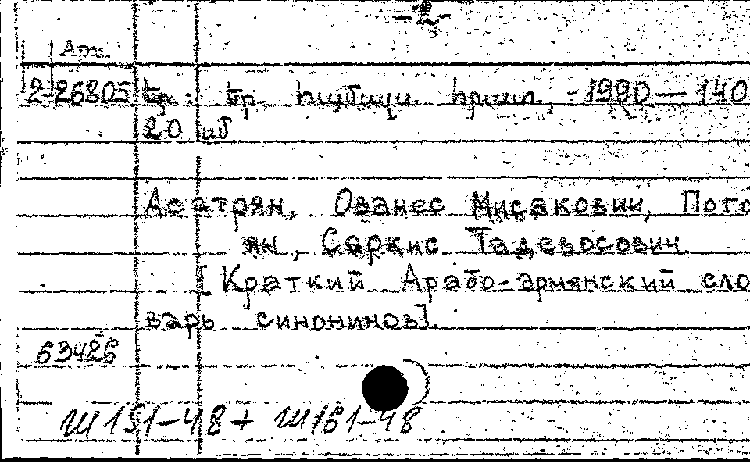 -2-
Арм.
2-26805 Եր.: Եր. համալս. հրատ., -1990— 140
20 սմ
Асатрян, Ованес Мисакович, Пого
ян, Саркис Тадевосович
[Краткий Арабо-армянский сло
варь синонинов].
63426
Ш151-48+ Ш161-48